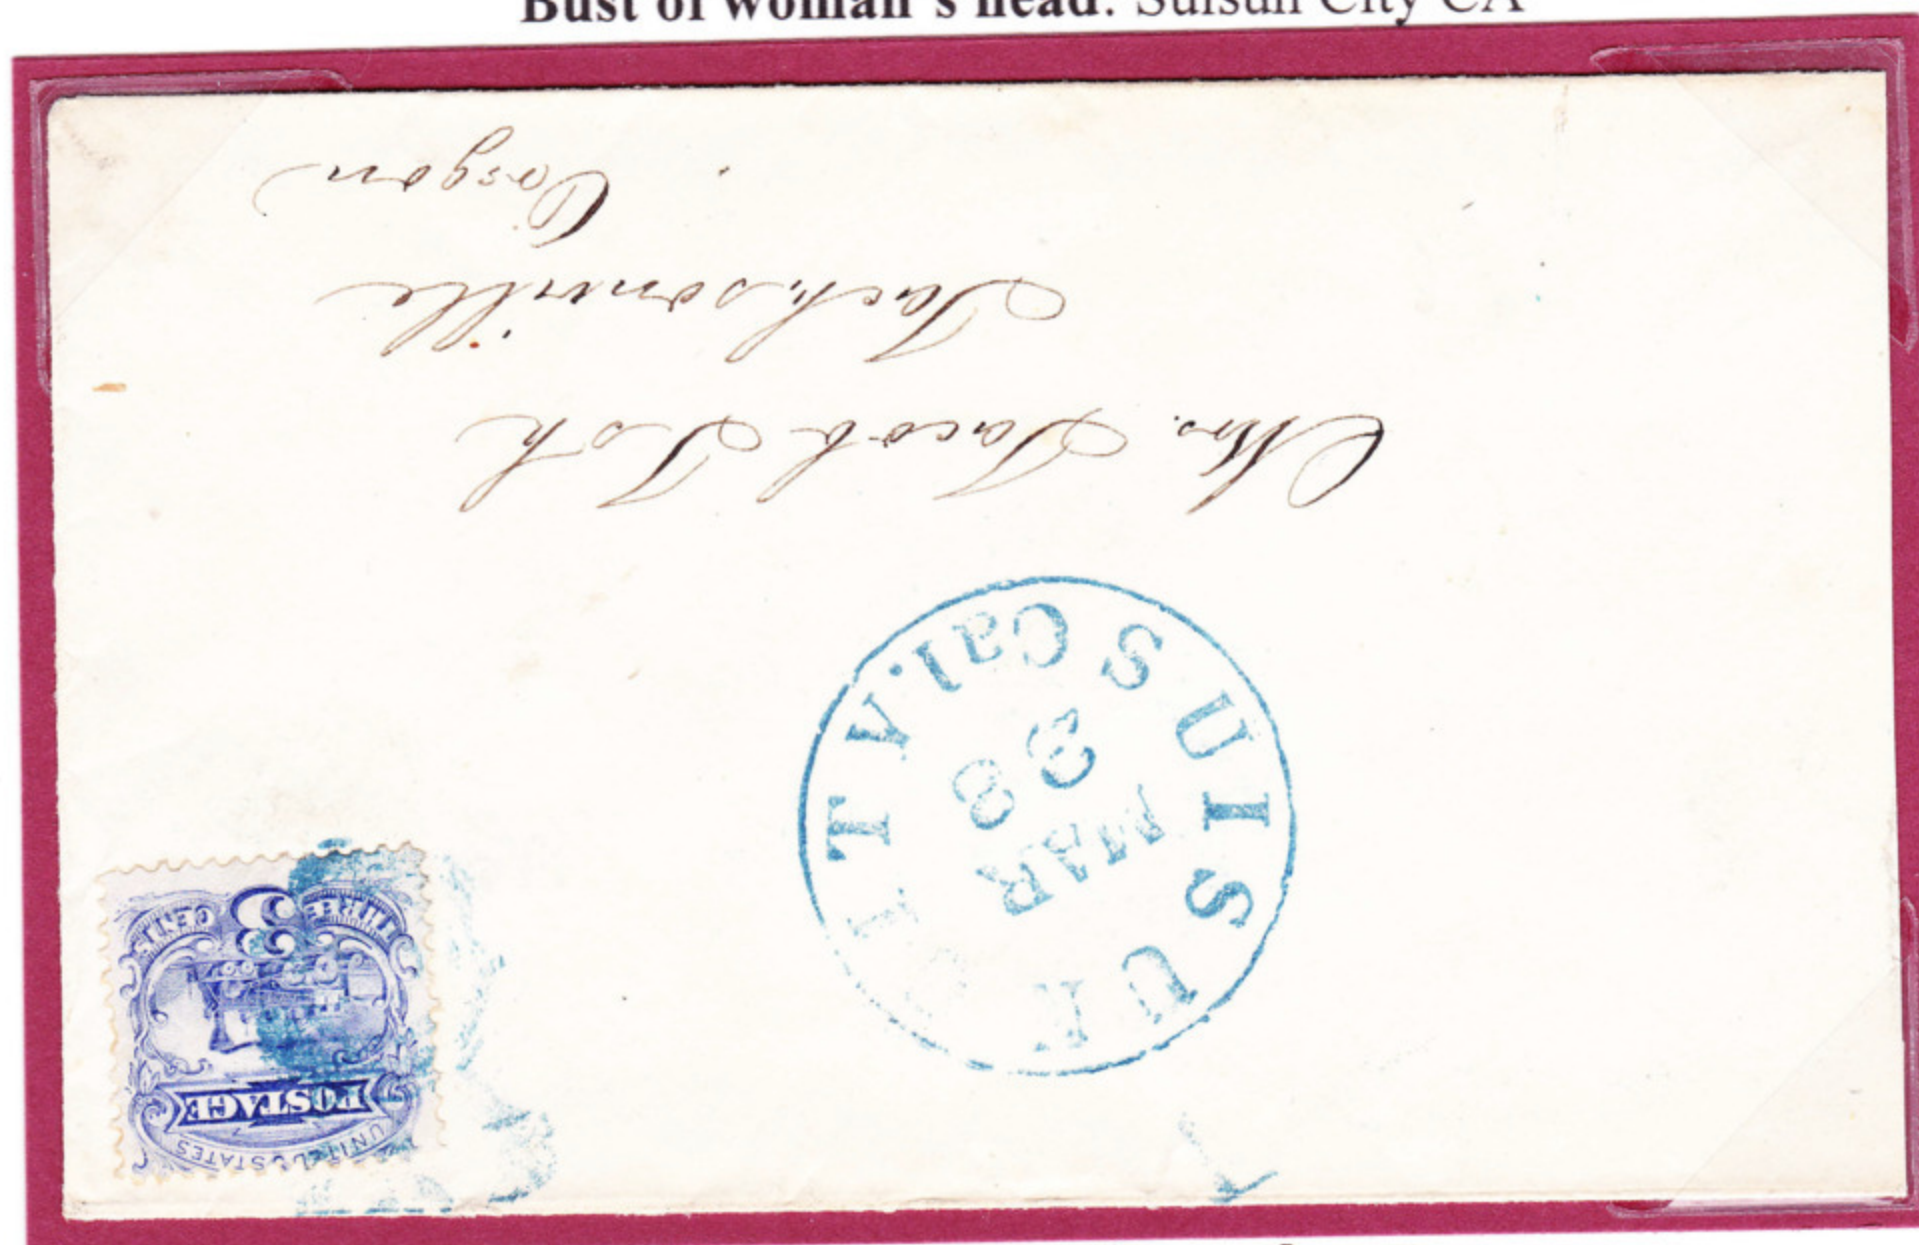 Bust of woman's head. Suisun City CA
Mrs. Jacob Ish
Jacksonville
Oregon
SUISUN CITY.
Cal.
MAR
28
UNITED STATES
POSTAGE
THREE 3 CENTS